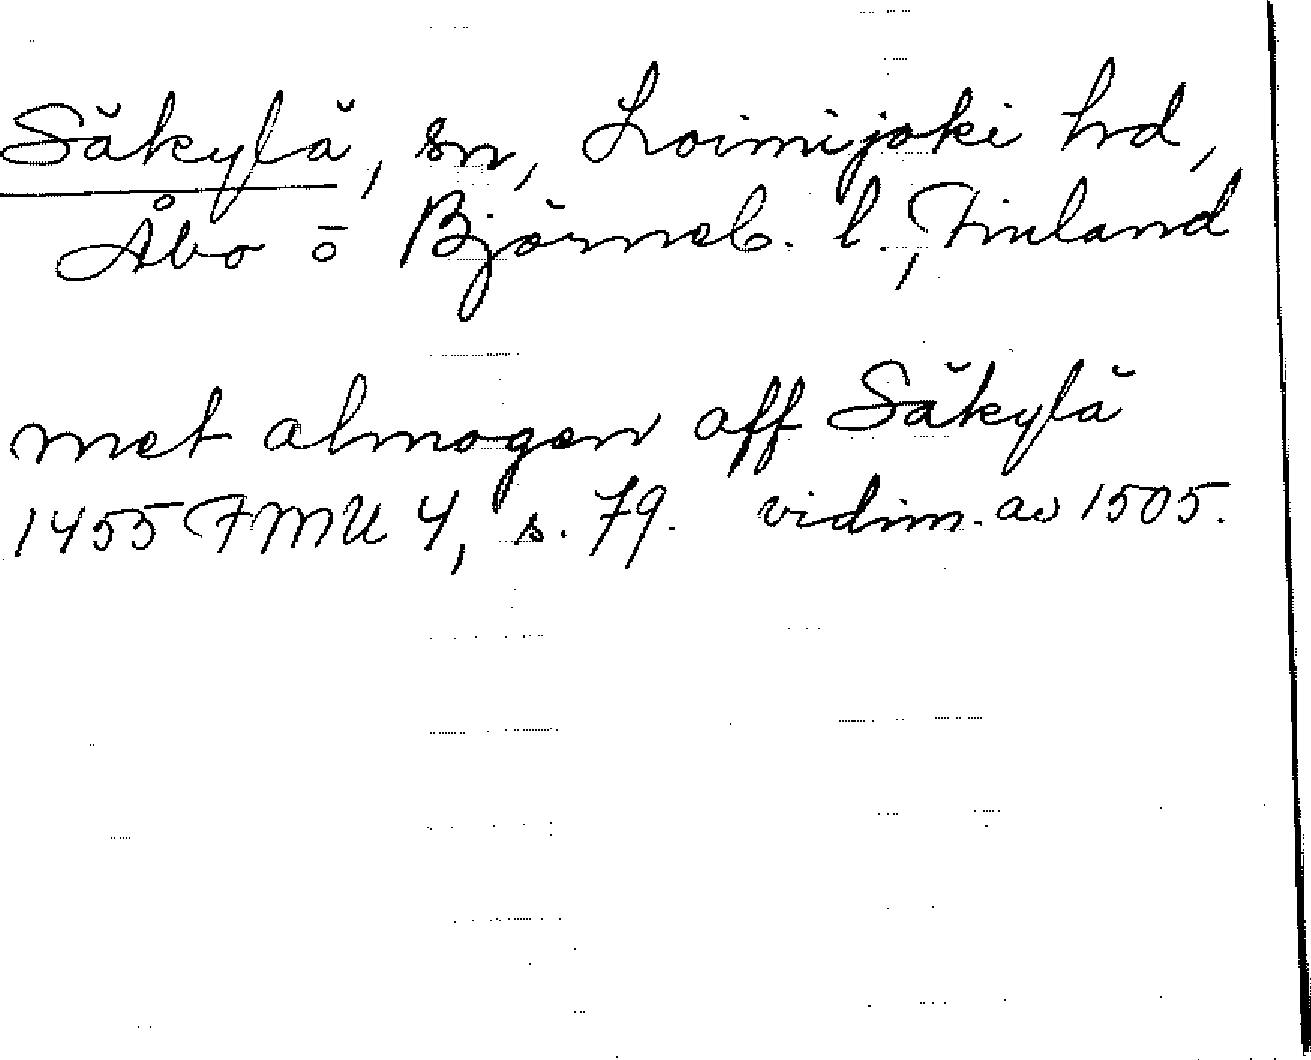 Säkylä, sn, Loimijoki hd,
Åbo ö Björneb. l., Finland
met almogen aff Säkylä
1455 FMU 4, s. 79. vidim. av 1505.